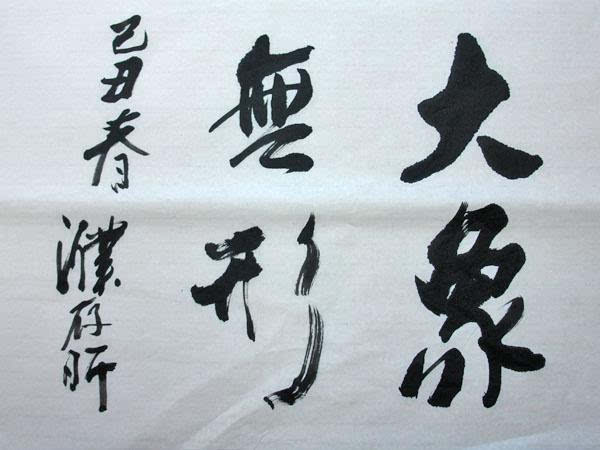 大象
無形
己丑春
濮存昕